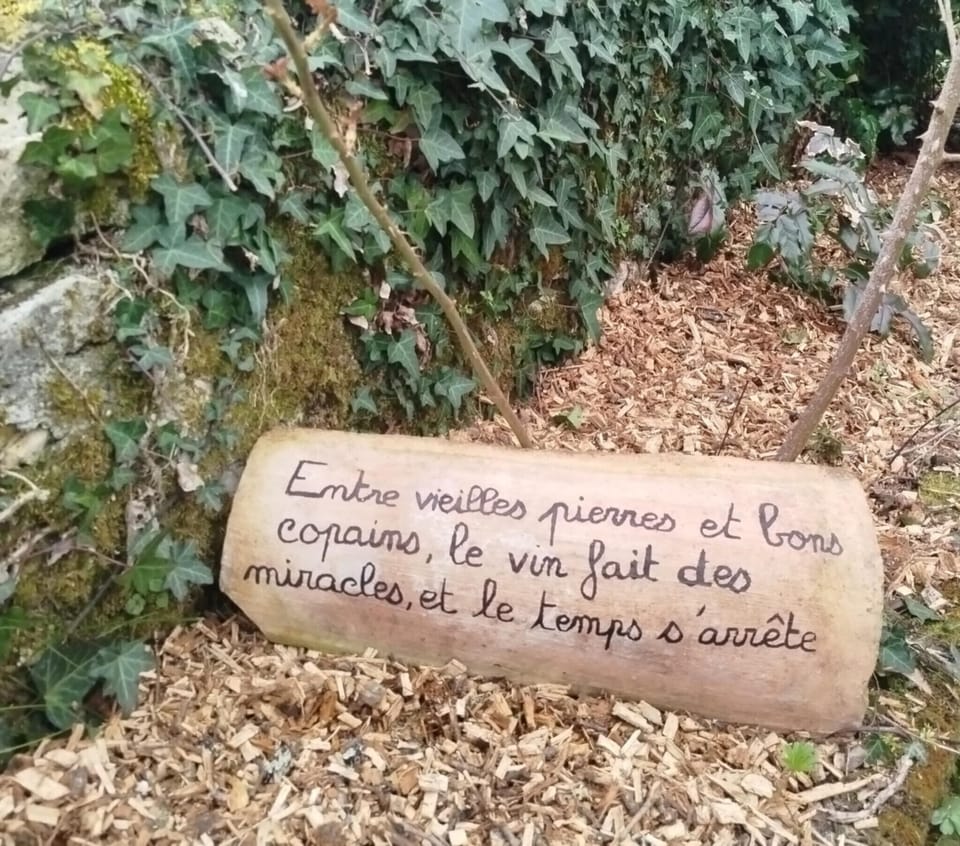 Entre vieilles pierres et bons
copains, le vin fait des
miracles, et le temps s'arrête